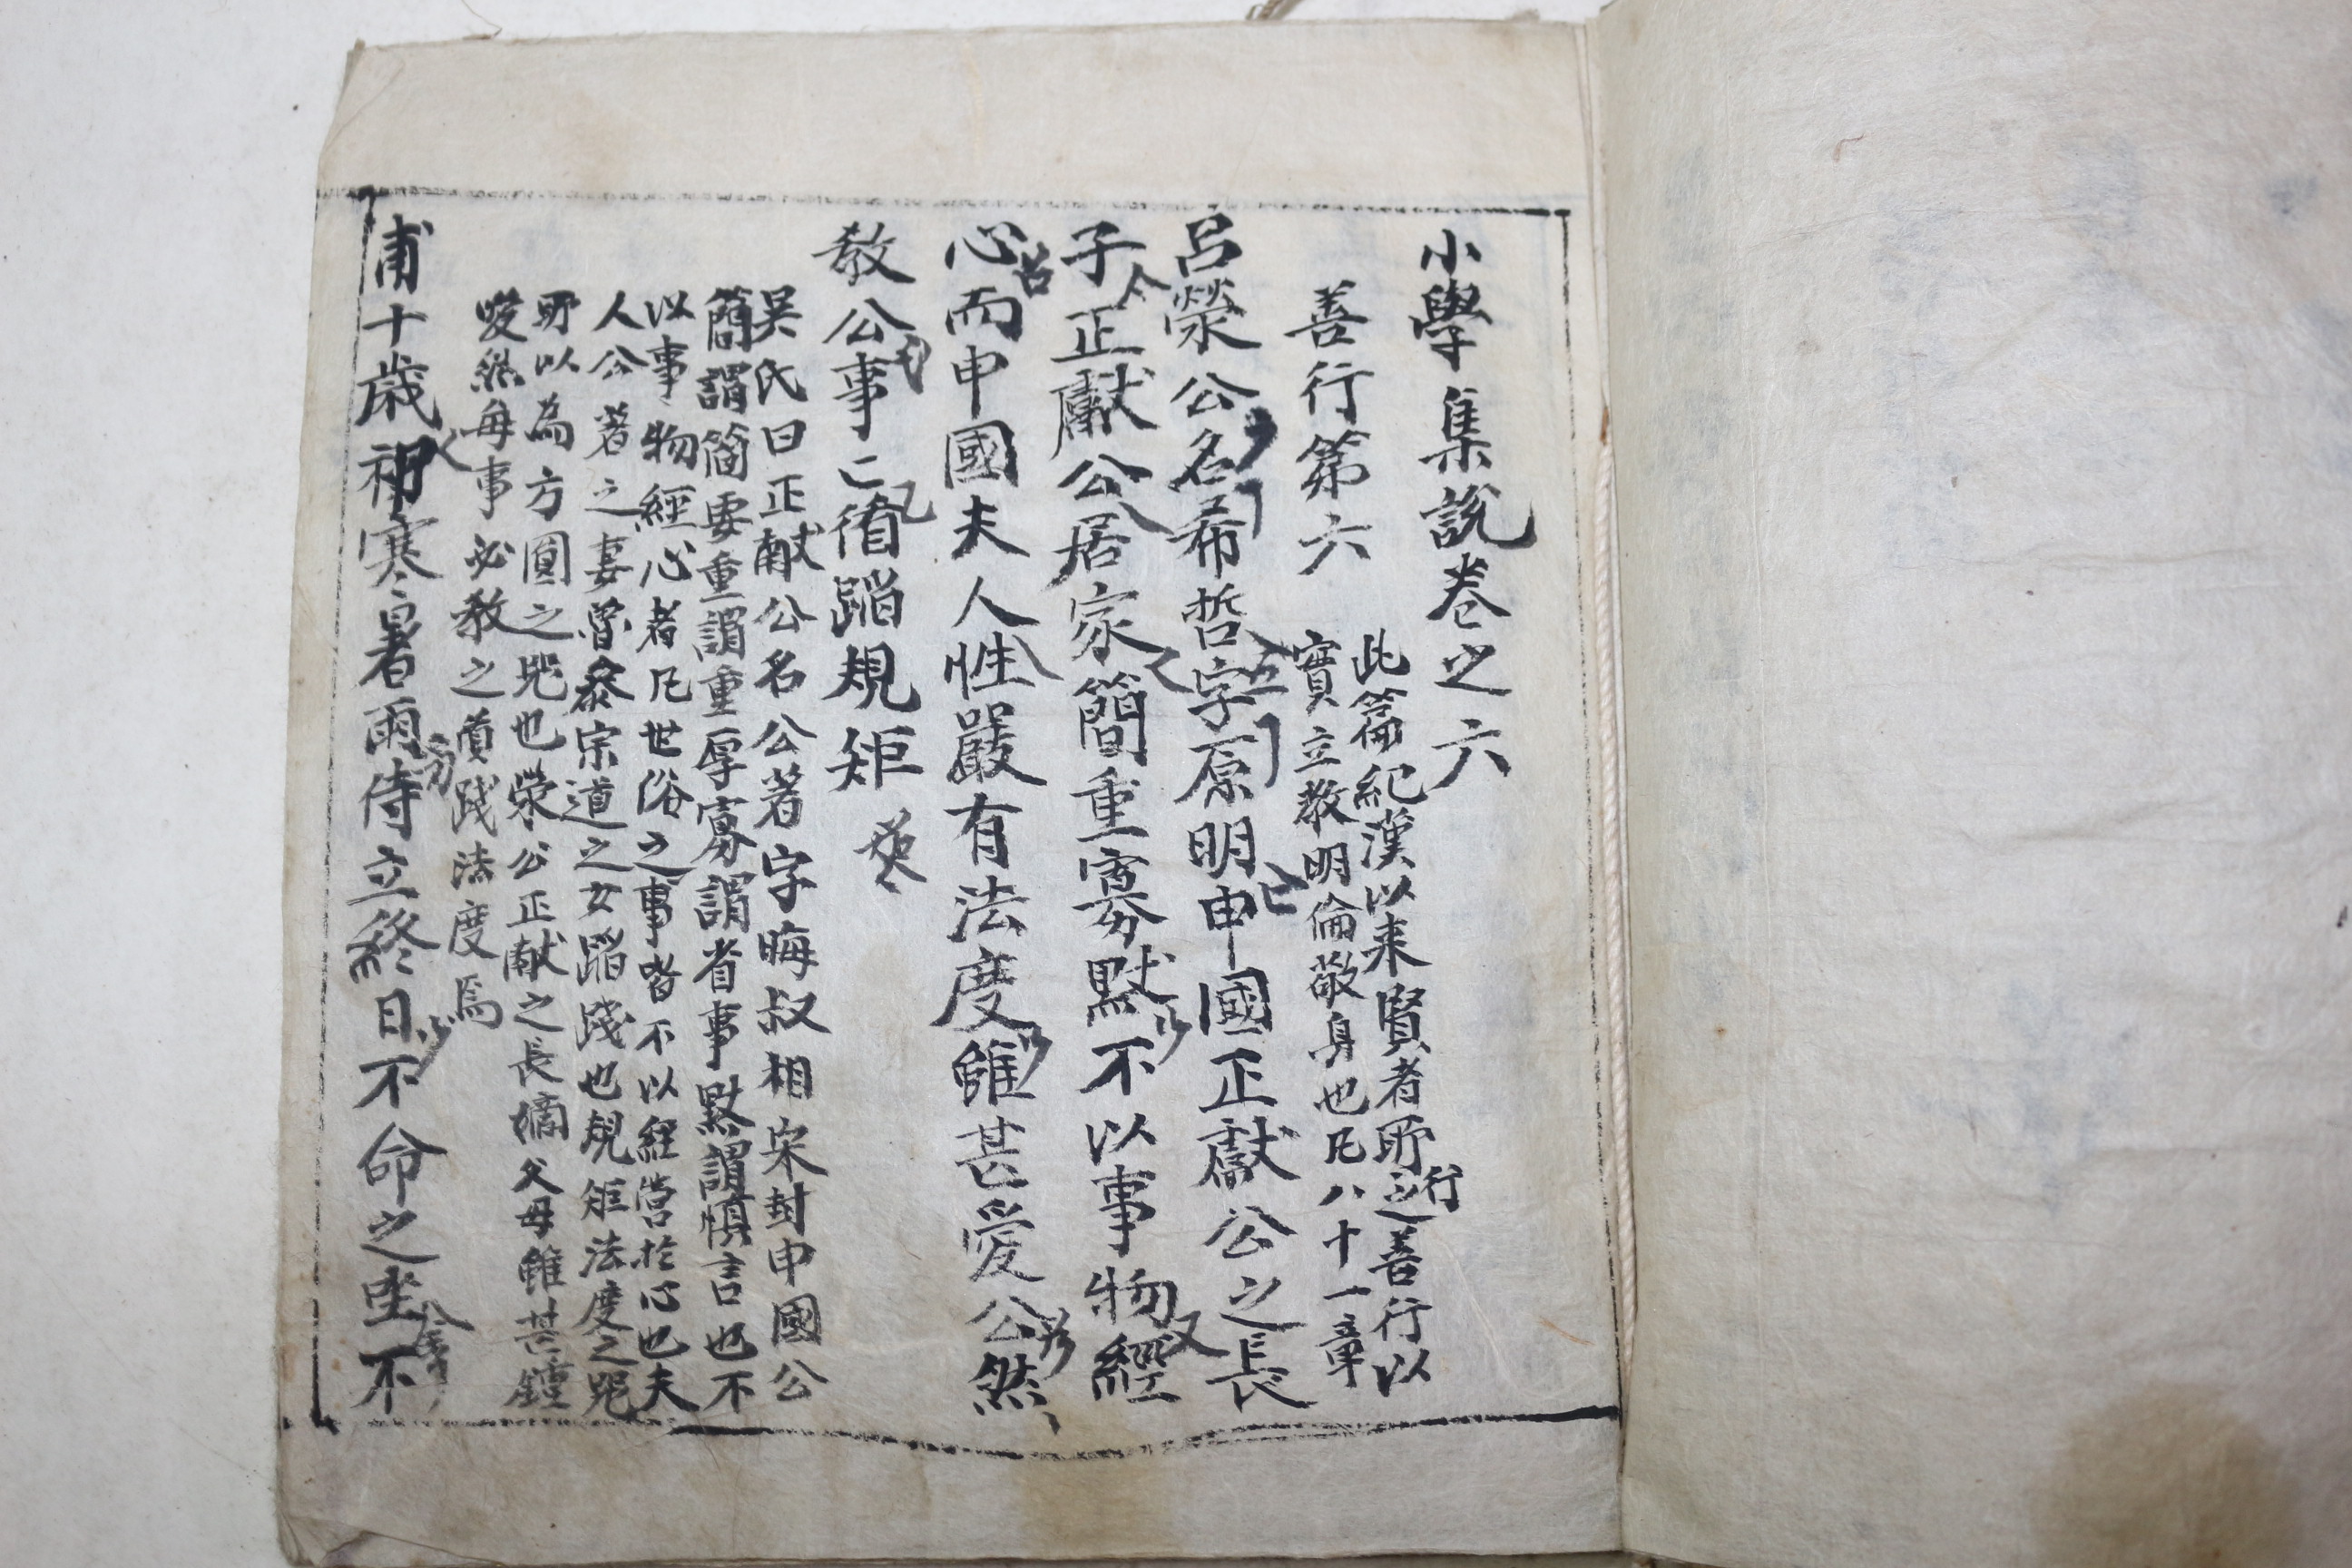 小學集說卷之六
善行第六
此篇紀漢以来賢者所行之善行以
實立教明倫敬身也凡八十一章
呂榮公名希哲字原明申國正獻公之長
子正獻公居家簡重寡默不以事物經
心而申國夫人性嚴有法度雖甚愛公然
教公事〻循蹈規矩
吴氏曰正献公名公著字晦叔相宋封申國公
簡謂簡要重謂重厚寡謂省事默謂慎言也不
以事物經心者凡世俗之事皆不以經営於心也夫
人公著之妻魯参宗道之女蹈踐也規矩法度之器
所以為方圓之器也荣公正献之長嫡父母雖甚鍾
愛然每事必教之循踐法度焉
甫十歲祁寒暑雨侍立終日不命之坐不